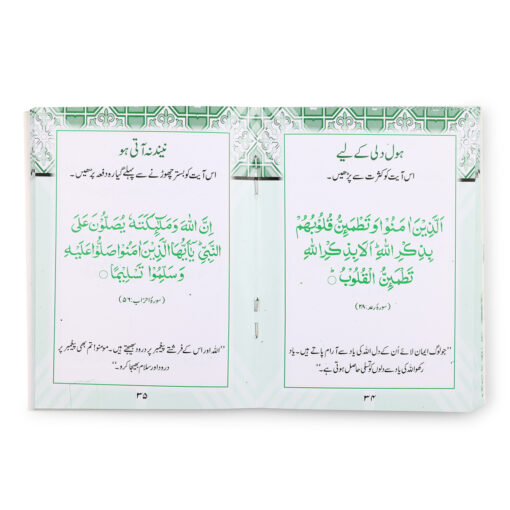 ہول دلی کے لیے
اس آیت کو کثرت سے پڑھیں۔
اَلَّذِیْنَ اٰمَنُوْا وَ تَطْمَئِنُّ قُلُوْبُهُمْ
بِذِكْرِ اللّٰهِؕ اَلَا بِذِكْرِ اللّٰهِ
تَطْمَئِنُّ الْقُلُوْبُؕ
(سورۂ رعد: ۲۸)
’’جو لوگ ایمان لائے اُن کے دل اللہ کی یاد سے آرام پاتے ہیں۔ یاد
رکھو اللہ کی یاد سے دلوں کو تسلی حاصل ہوتی ہے۔‘‘
۳۴
نیند نہ آتی ہو
اس آیت کو بستر چھوڑنے سے پہلے گیارہ دفعہ پڑھیں۔
اِنَّ اللّٰهَ وَ مَلٰٓىِٕكَتَهٗ یُصَلُّوْنَ عَلَى
النَّبِیِّؕ یٰۤاَیُّهَا الَّذِیْنَ اٰمَنُوْا صَلُّوْا عَلَیْهِ
وَ سَلِّمُوْا تَسْلِیْمًا۝
(سورۂ احزاب: ۵۶)
’’اللہ اور اس کے فرشتے پیغمبر پر درود بھیجتے ہیں۔ مومنو! تم بھی پیغمبر پر
درود اور سلام بھیجا کرو۔‘‘
۳۵